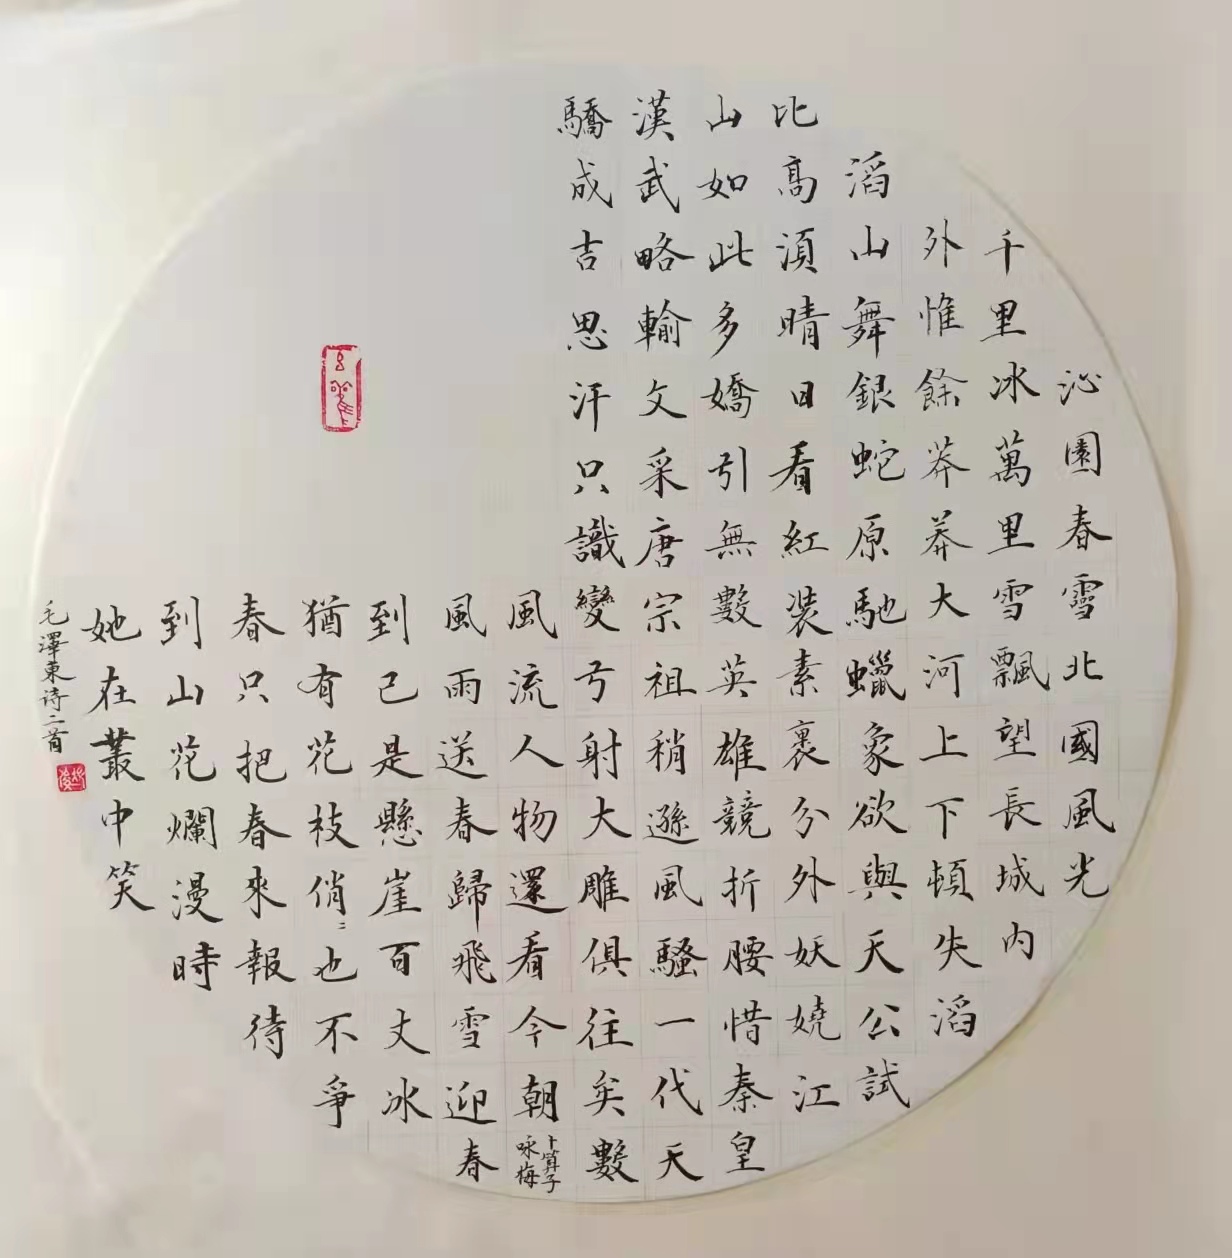 沁園春雪北國風光
千里冰萬里雪飄望長城内
外惟餘莽莽大河上下頓失滔
滔山舞銀蛇原馳蠟象欲與天公試
比高須晴日看紅裝素裹分外妖嬈江
山如此多嬌引無數英雄競折腰惜秦皇
漢武略輸文采唐宗祖稍遜風騷一代天
驕成吉思汗只識變弓射大雕俱往矣數
風流人物還看今朝
卜算子
咏梅
風雨送春歸飛雪迎春
到已是懸崖百丈冰
猶有花枝俏〻也不爭
春只把春來報待
到山花爛漫時
她在叢中笑
毛澤東诗二首